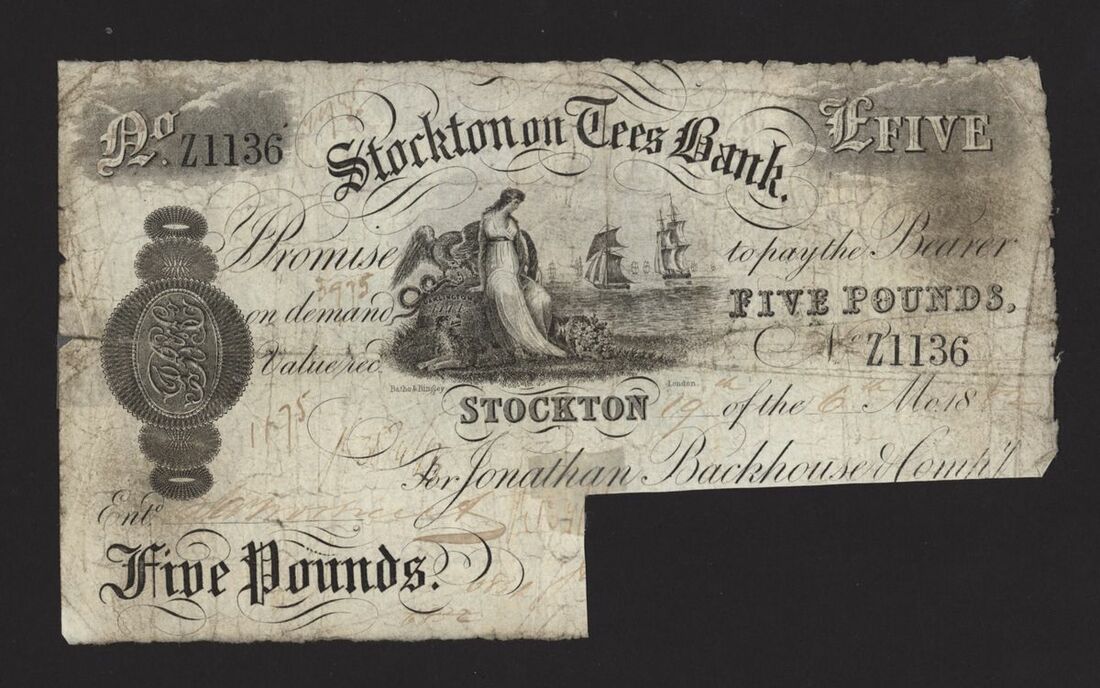 No. Z1136
Stockton on Tees Bank.
£FIVE
I Promise to pay the Bearer
3975
on demand FIVE POUNDS,
Value recd No Z1136
Bathe & Bingley London
STOCKTON 19th of the 6th Mo. 18
1175
For Jonathan Backhouse & Compy
Entd
Five Pounds.